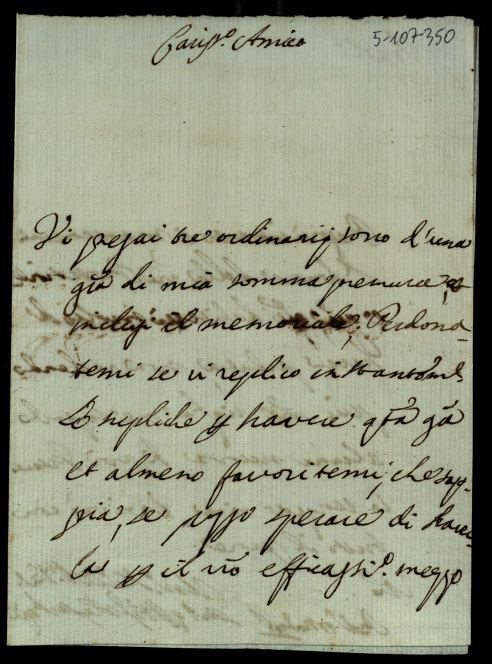 Cariss.o Amico
5-107-350
Vi pregai tre ordinarij sono d'una
gra di mia somma premura, et
inclusi il memoriale; Perdona-
temi se vi replico
le repliche p havere qta gra
et almeno favoritemi, che sap-
pia, se posso sperare di haver-
la p il vro efficassi.o mezzo